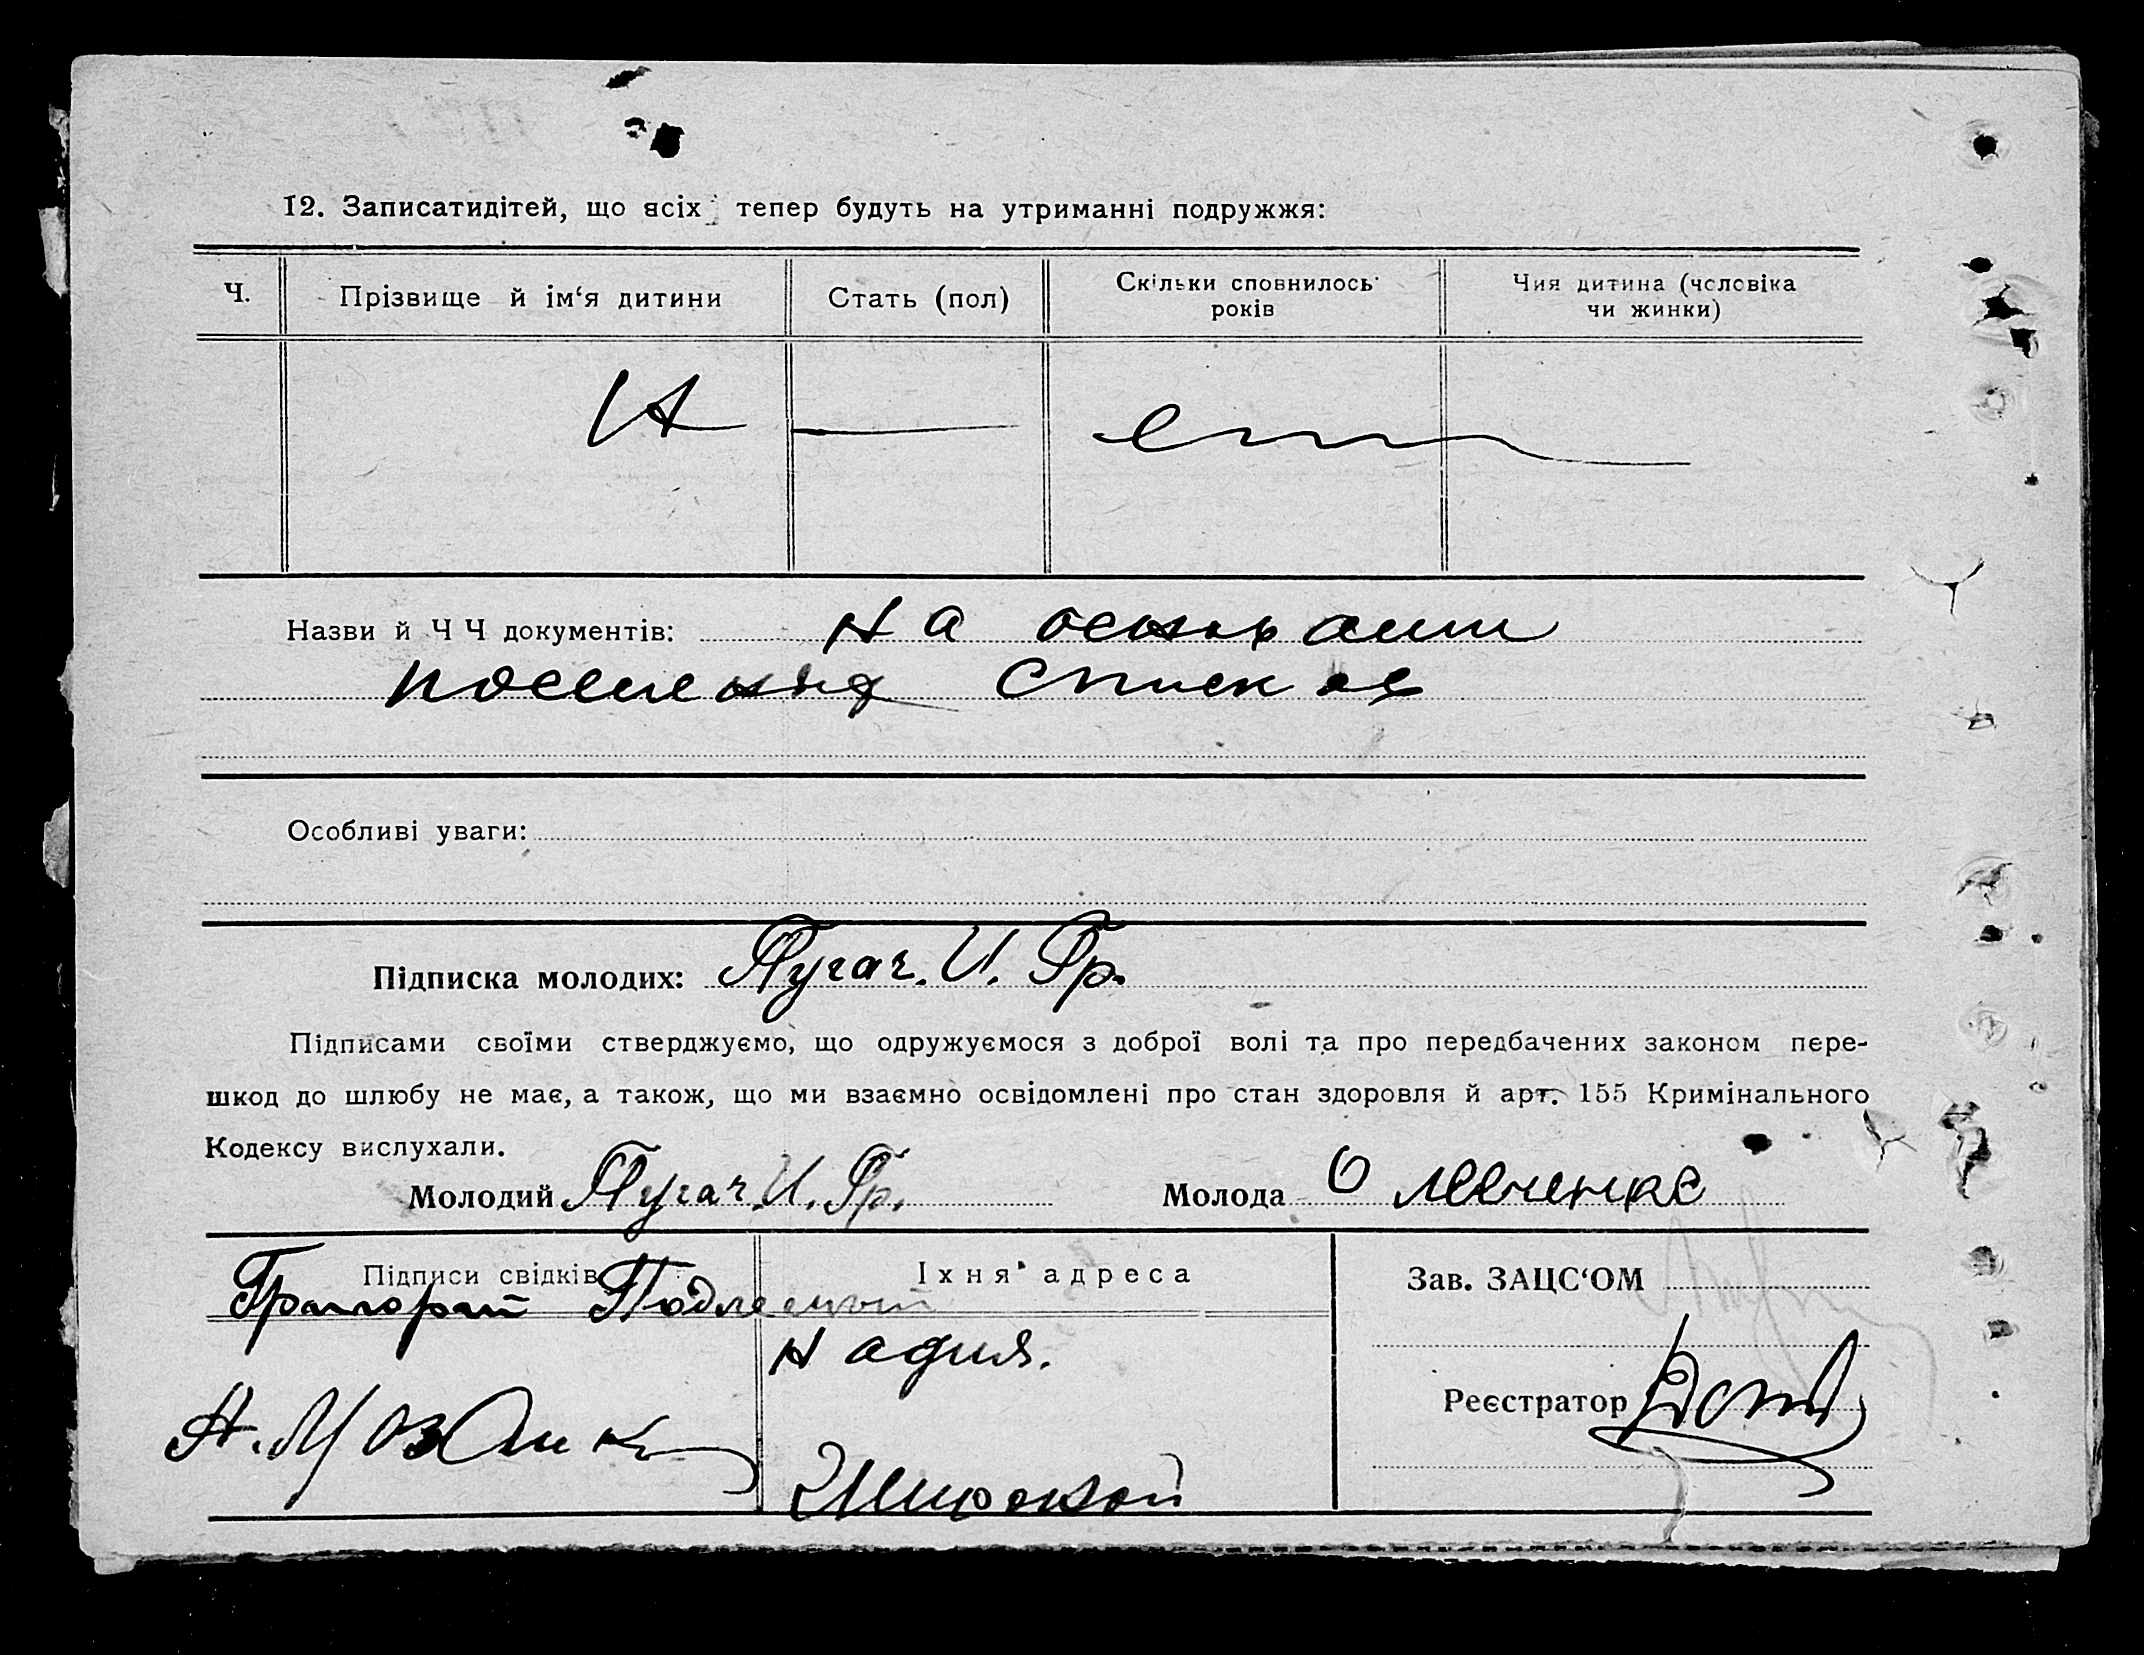 12. Записатидітей, що всіх тепер будуть на утриманні подружжя:
Ч.
Прізвище й ім‘я дитини
Стать (пол)
Скільки сповнилось років
Чия дитина (чоловіка чи жинки)
Назви й Ч Ч документів: на основании
списков
Особливі уваги:
Підписка молодих: Пугач. И. Гр.
Підписами своїми стверджуємо, що одружуємося з доброї волі та про передбачених законом пере-
шкод до шлюбу не має, а також, що ми взаємно освідомлені про стан здоровля й арт. 155 Кримінального
Кодексу вислухали.
Молодий Пугач. И. Гр. Молода О Левченко
Підписи свідків
Їхня адреса
Зав. ЗАЦС‘ОМ
Григорий
Надия.
Реєстратор